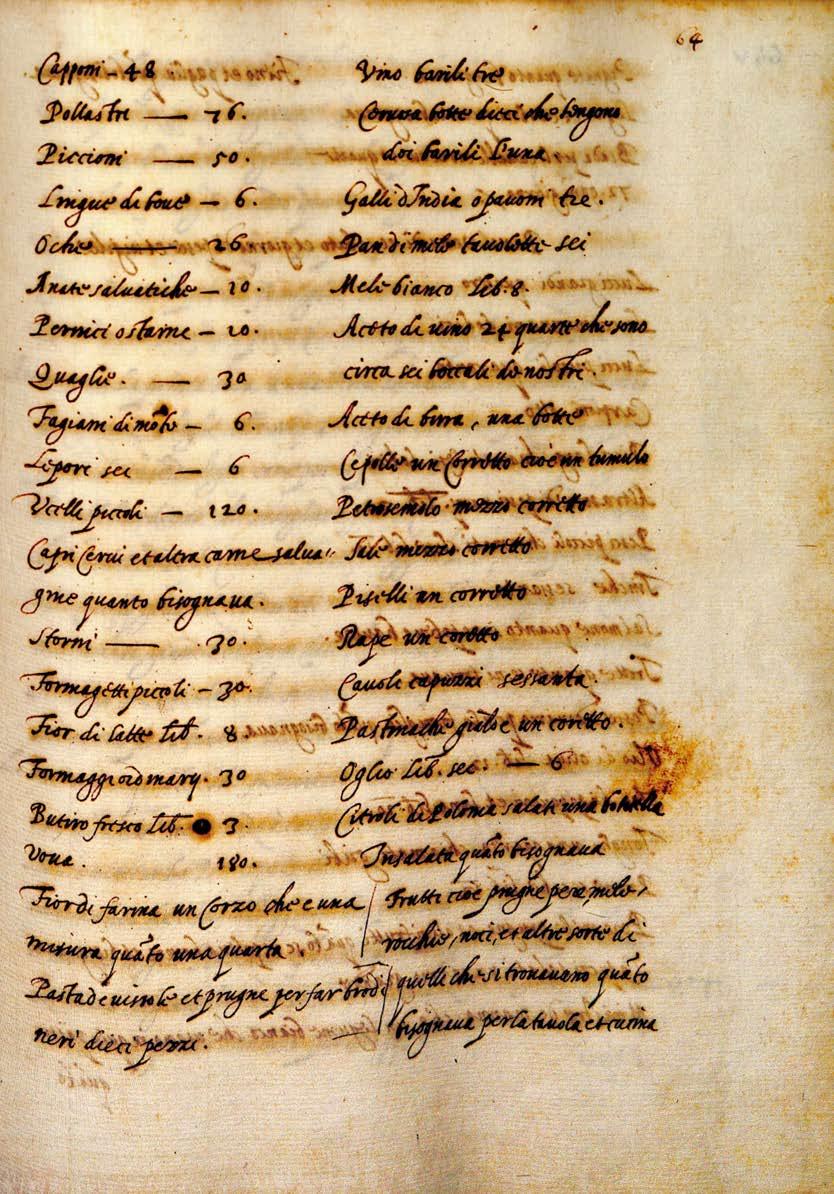 64
Capponi – 48
Pollastri — 76.
Piccioni — 50.
Lingue di boue – 6.
Oche — 26
Anate saluatiche – 20.
Pernici o starne – 20.
Quaglie. — 30
Fagiani di mõte – 6.
Lepori sei – 6
Vcelli piccoli – 120.
Capri Cerui et altra carne salua„
gine quanto bisognaua.
Storni — 30.
Formagetti piccoli – 30.
Fior di latte lib. 8
Formaggi ordinary. 30
Butiro fresco lib. 3.
Voua. 180.
Fior di farina un Corzo che e una
misura quãto una quarta
Pasta de uisiole et prugne per far brodi
neri dieci pezzi.
Vino barili tre
Ceruosa botte dieci che tengono
doi barili l'una
Galli d'India o pauoni tre.
Pan di mele tauolette sei
Mele bianco Lib. 8.
Aceto di uino 24 quarte che sono
circa sei boccali de nostri.
Aceto di birra, una botte
Cepolle un Corretto cioè un tumulo
Petrosemolo mezzo corretto
Sale mezzo corretto
Piselli un corretto
Rape un coretto
Cauoli capuzzi sessanta.
Pastinache gialle un coretto.
Oglio Lib. sei. — 6
Citroli di Polonia salati una bottella
Insalata quãto bisognaua
Frutti cioè prugne pera, mele,
rochie, noci, et altre sorte di
quelli che si trouauano quãto
bisognaua per la tauola et cucina